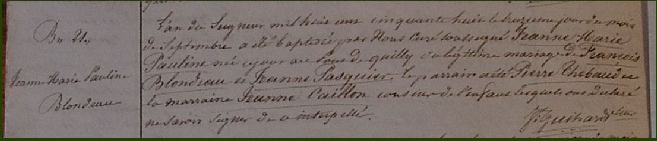 Bn 21e
Jeanne Marie Pauline
Blondeau
L'an du Seigneur mil huit cent cinquante huit le treizième jour du mois
de Septembre a été baptisée par Nous Curé soussigné Jeanne Marie
Pauline née ce jour au de quilly du légitime mariage de François
Blondeau et Jeanne Pasquier. le parrain a été Pierre Thebaud
la marraine Jeanne Caillon de l'enfant lesquels ont déclaré
ne savoir signer de ce interpellé.
J. Guihard